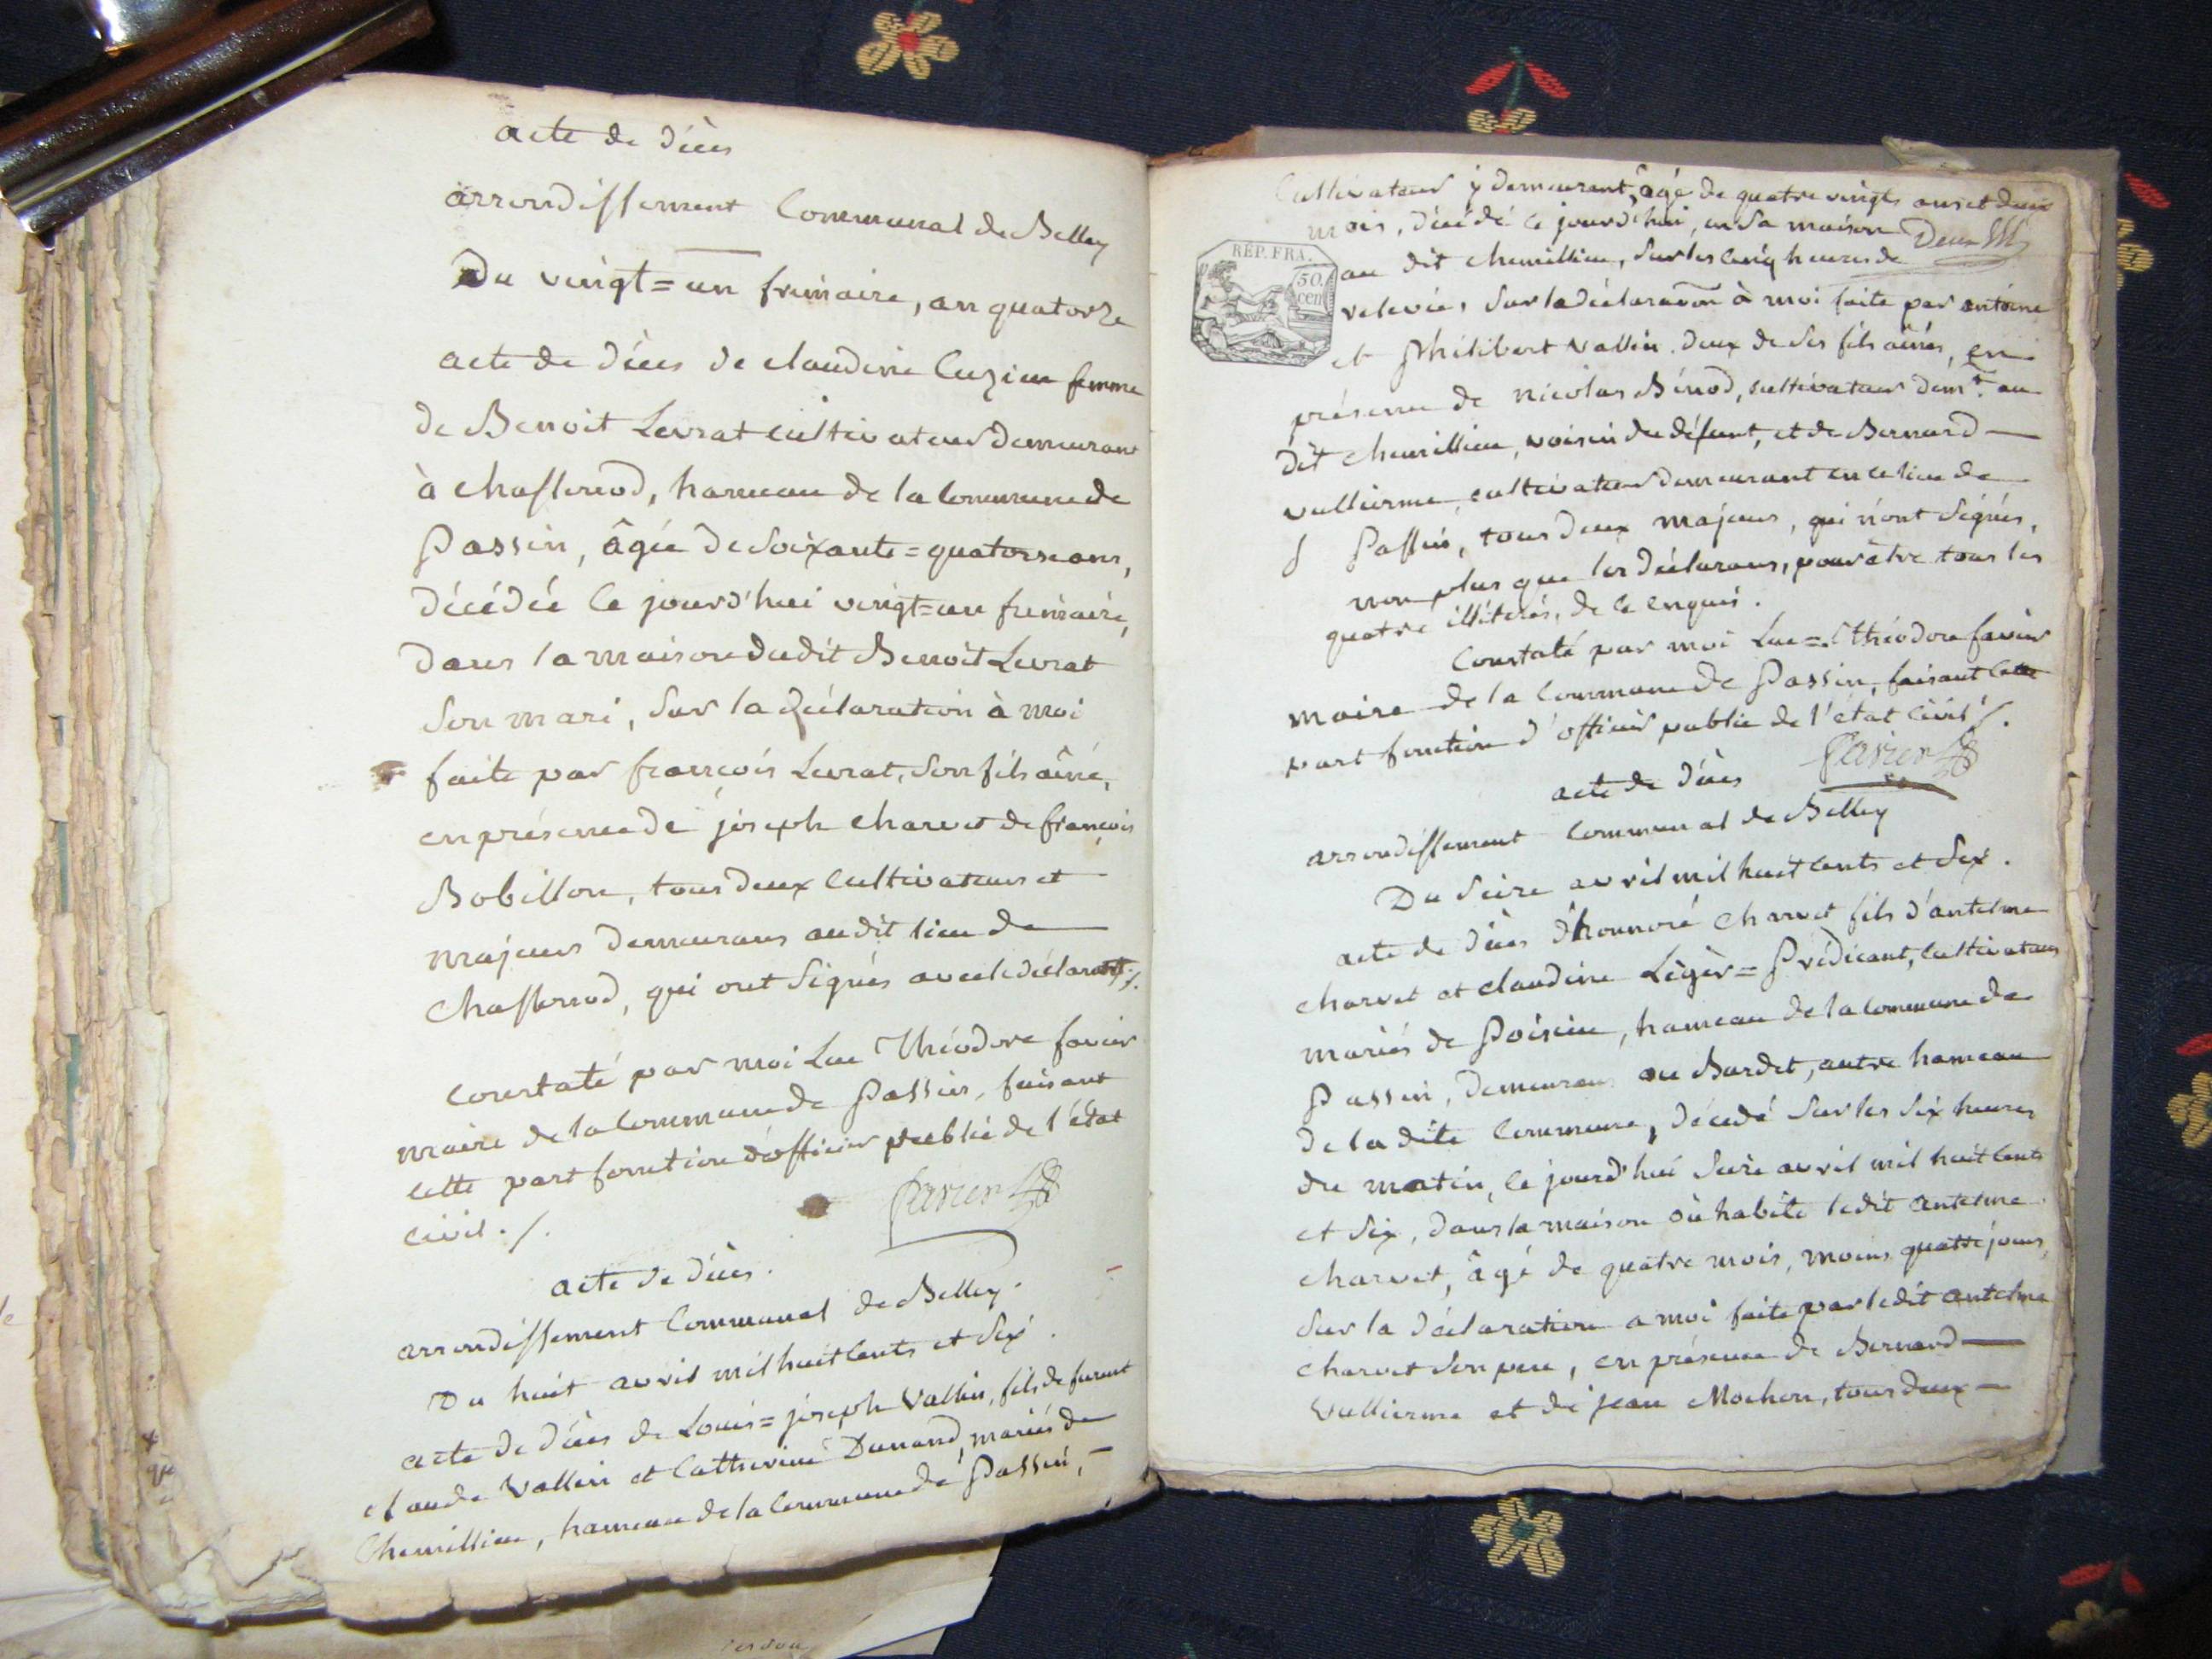 acte de décès
arrondissement Communal de Belley
Du vingt=un frimaire, an quatorze
acte de décès de claudine Cuzieu femme
de Benoit Levrat cultivateur demeurant
à chassernod, hameau de la Commune de
Passin, âgée de soixante=quatorze ans,
décédée ce jourd'hui vingt=un frimaire,
dans la maison dudit Benoit Levrat
son mari, sur la déclaration à moi
faite par françois Levrat, son fils aîné,
en présence de joseph charvet de françois
Bobillon, tous deux cultivateurs et
majeurs demeurans audit lieu de
Chassernod, qui ont signés avec le déclarant ./.
Constaté par moi Luc Théodore favier
maire de la Commune de Passin, faisant
cette part fonction d'officier public de l'état
civil ./.
favier
acte de décès.
arrondissement Communal de Belley.
Du huit avril mil huit cents et six.
acte de décès de Louis=joseph Vallin, fils de furent
claude Vallin et Catherine Dunand, mariés de
Chemillieu, hameau de la Commune de Passin,
Cultivateur y demeurant, âgé de quatre vingts ans et deux
mois, décédé ce jourd'hui, en sa maison
REP. FRA.
50.
cen
au dit chemillieu, sur les cinq heures de
relevée, sur la déclaration à moi faite par antoine
et Philibert Vallin, deux de ses fils aînés, en
présence de nicolas Bénod, cultivateur demt. au
dit chemillieu, voisin du défunt, et de Bernard
vullierme, cultivateur demeurant en ce lieu de
Passin, tous deux majeurs, qui n'ont signés,
non plus que les déclarans, pour être tous les
quatre illiterés, de ce enquis.
Constaté par moi Luc=Théodore favier
maire de la Commune de Passin, faisant cette
part fonction d'officier public de l'état civil ./.
favier
acte de décès
arrondissement Communal de Belley
Du seize avril mil huit cents et six.
acte de décès d'honnoré charvet fils d'antelme
charvet et claudine Légèr=Prédicant, cultivateurs
mariés de Poisieu, hameau de la Commune de
Passin, demeurans au Bardet, autre hameau
de la dite Commune, décédé sur les six heures
du matin, ce jourd'hui seize avril mil huit cents
et six, dans la maison où habite ledit antelme
charvet, âgé de quatre mois, moins quatre jours,
sur la déclaration a moi faite par ledit antelme
charvet son pere, en présence de Bernard
Vullierme et de jean Mochon, tous deux